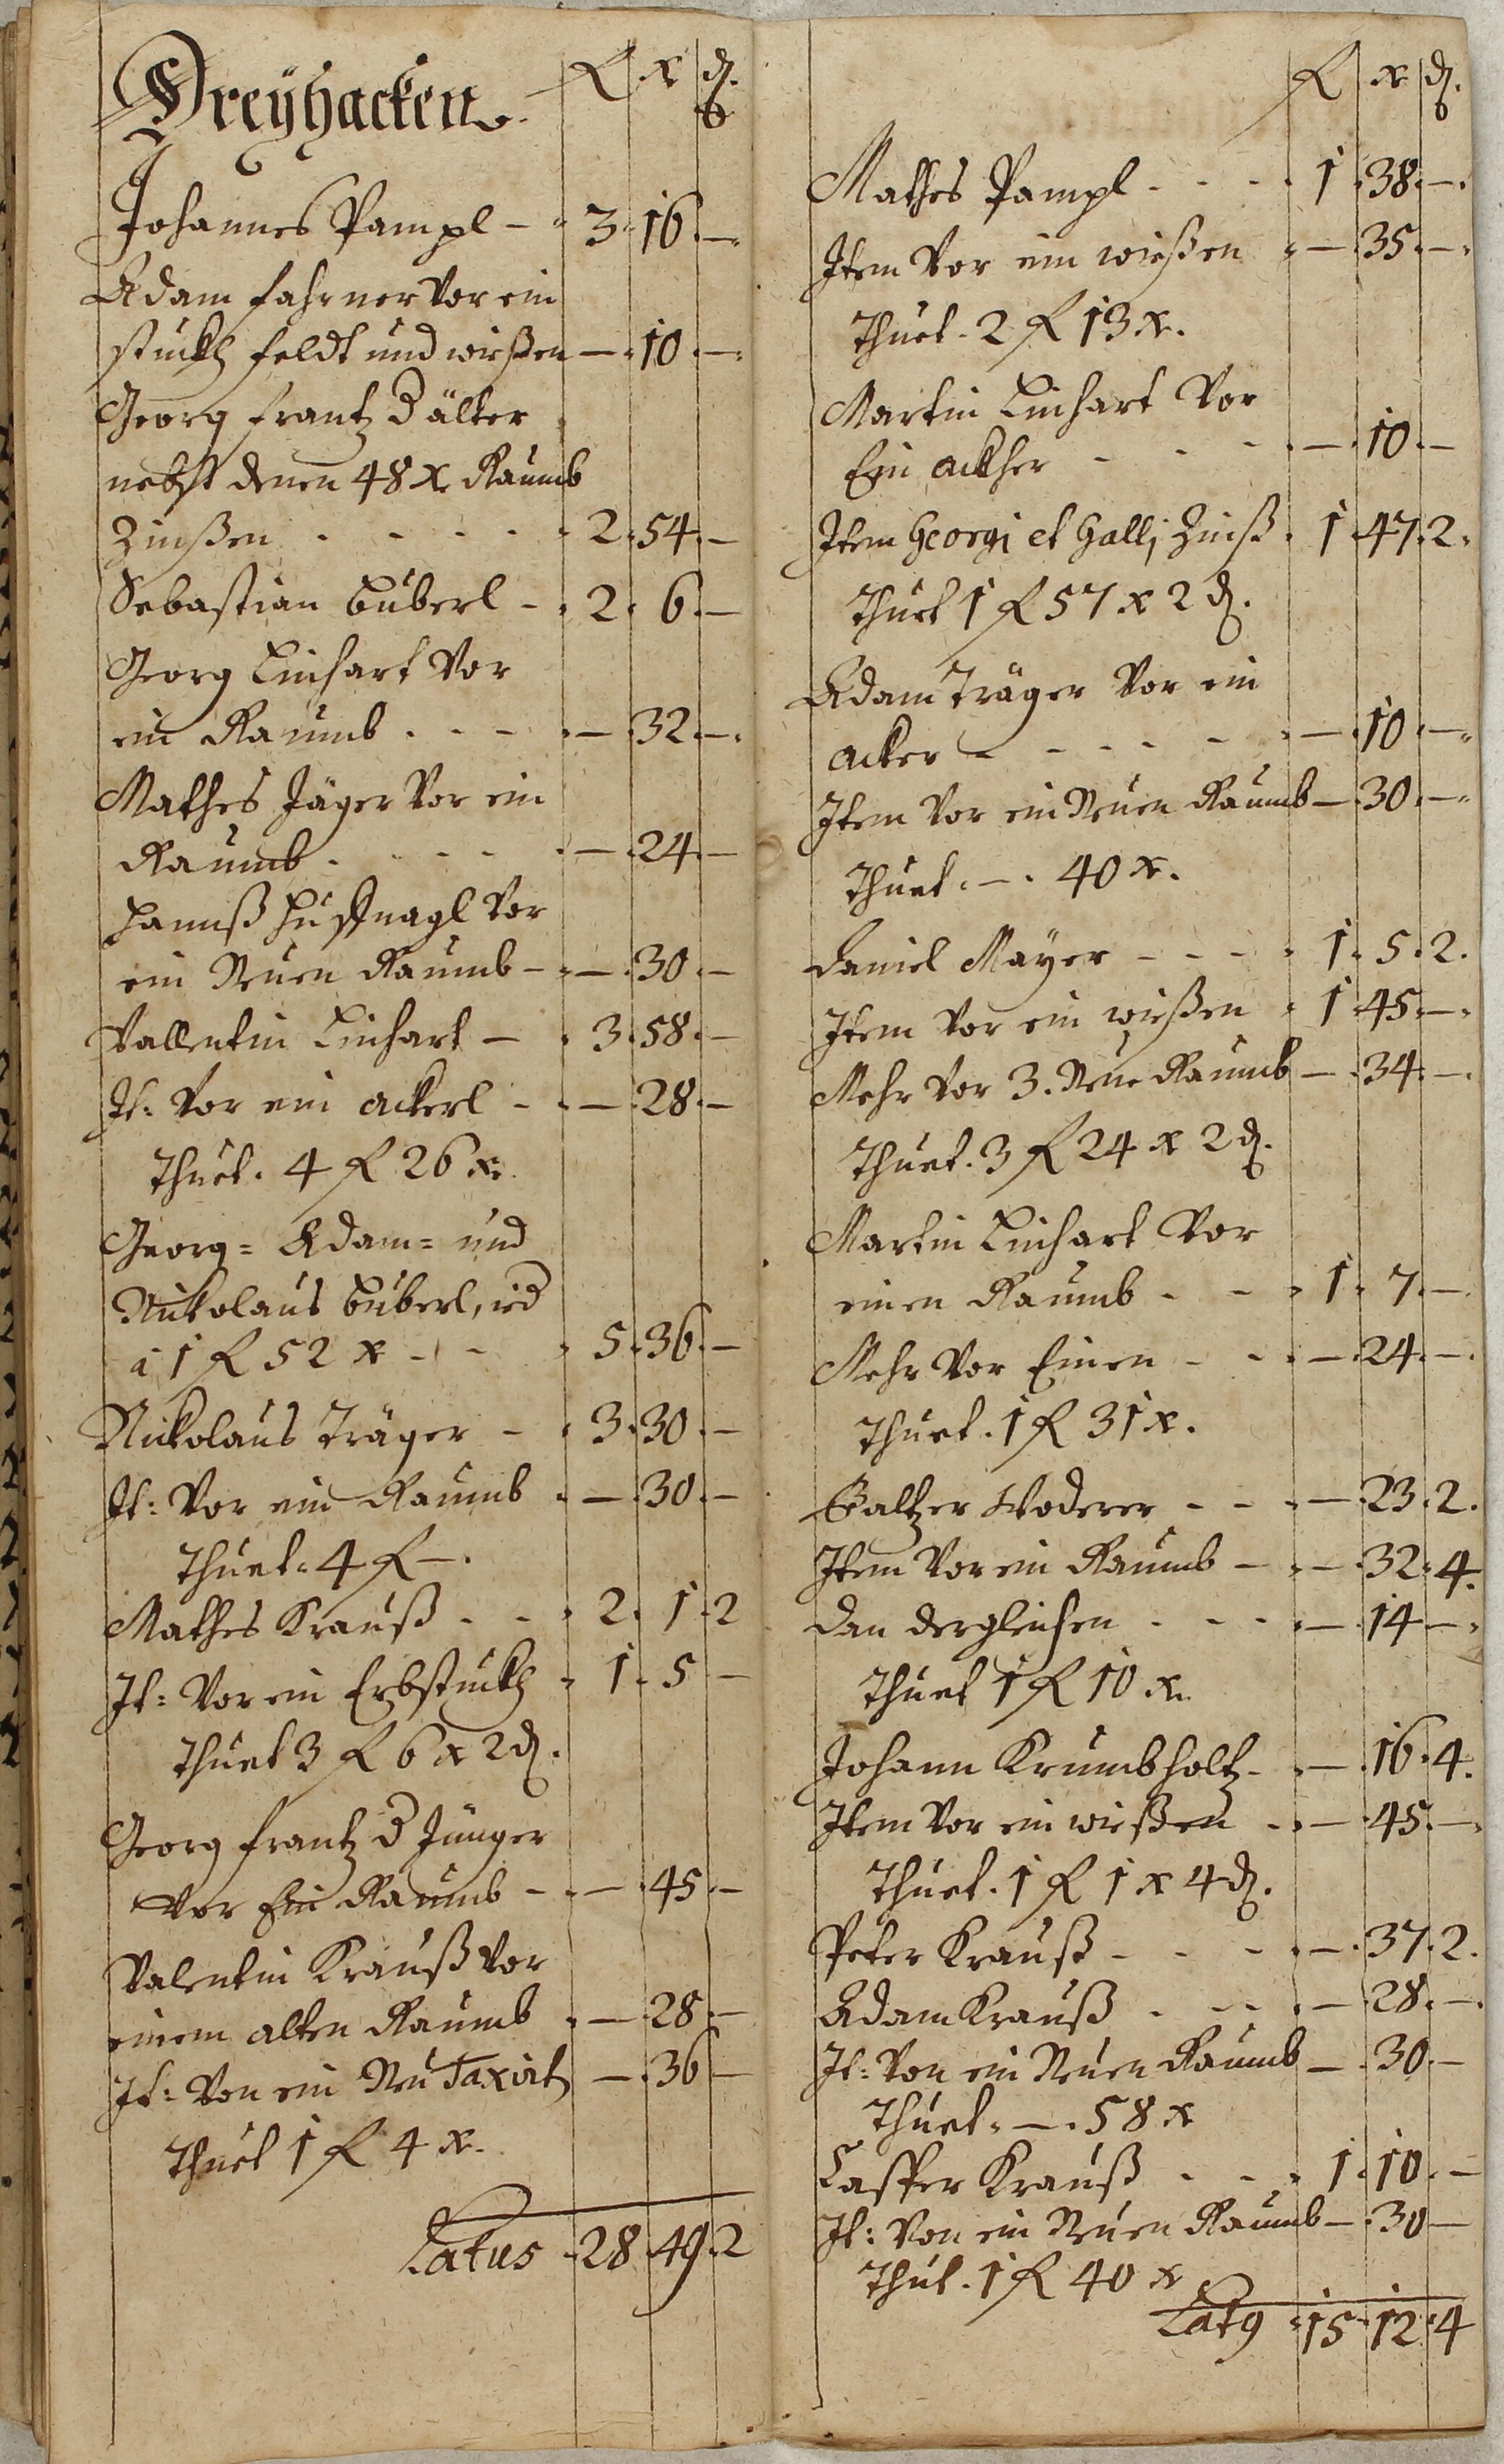 Dreyhacken. f x ₰.
Johannes Pampl - 3. 16. —
Adam Fahrner Vor ein
stuckh feldt und wießen — . 10. —
Georg Frantz d älter
nebst denen 48 x Raumb
Zinßen . - - - 2. 54. —
Sebastian Büberl - . 2. 6. —
Georg Linhart Vor
ein Raumb . - - . — . 32. —
Mathes Jäger Vor ein
Raumb . - - - . — . 24. —
Hannß Huffnagl Vor
ein Neuen Raumb - . — . 30. —
Vallentin Linhart — . 3. 58. —
It: Vor ein ackerl - . — . 28. —
Thuet. 4 f 26 x.
Georg= Adam= und
Nickolaus Büberl, ied
à 1 f 52 x - - . 5. 36. —
Nickolaus Träger - . 3. 30. —
It: Vor ein Raumb . — . 30. —
Thuet. 4 f —.
Mathes Krauß . - . 2. 1. 2
It: Vor ein Erbstuckh . 1. 5 —
Thuet 3 f 6 x 2 ₰.
Georg Frantz d Jünger
Vor Ein Raumb - . — . 45. —
Valentin Krauß Vor
einem alten Raumb . — . 28. —
It: Von ein Neu Taxirt — . 36 —
Thuet 1 f 4 x.
Latus . 28. 49. 2
f x ₰.
Mathes Pampl - - - . 1. 38. —.
Item Vor ein wießen . — . 35. —.
Thuet. 2 f 13 x.
Martin Linhart Vor
Ein ackher - - - . — . 10. —
Item Georgi et Galli Zinß . 1. 47. 2.
Thuet 1 f 57 x 2 ₰.
Adam Träger Vor ein
acker - - - - - . — . 10. —.
Item Vor ein Neuen Raumb — . 30. —.
Thuet. — . 40 x.
Daniel Mayer - - - . 1. 5. 2.
Item Vor ein wießen . 1. 45. —.
Mehr Vor 3. Neue Raumb — . 34. —.
Thuet. 3 f 24 x 2 ₰.
Martin Linhart Vor
einen Raumb - - . 1. 7. —.
Mehr Vor Einen - - . — . 24. —.
Thuet. 1 f 31 x.
Baltzer Woderer - - . — . 23. 2.
Item Vor ein Raumb - . — . 32. 4.
dan dergleichen . - - . — . 14 —.
Thuet 1 f 10 x.
Johann Krumbholtz - . — . 16. 4.
Item Vor ein wießen . . — . 45. —.
Thuet. 1 f 1 x 4 ₰.
Peter Krauß - - - . — . 37. 2.
Adam Krauß . - - . — . 28. —.
It: Von ein Neuen Raumb — . 30. —
Thuet. — . 58 x
Casper Krauß . - . 1. 10. —
It: Von ein Neuen Raumb — . 30 —
Thuet. 1 f 40 x
Lat9 . 15. 12. 4